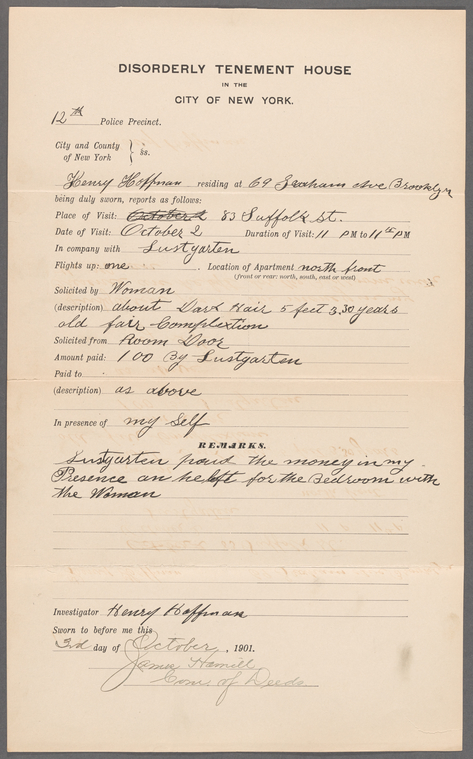 DISORDERLY TENEMENT HOUSE
IN THE
CITY OF NEW YORK.
12th Police Precinct.
City and County
of New York } ss.
Henry Hoffman residing at 69 Graham Ave Brooklyn
being duly sworn, reports as follows:
Place of Visit: October 2 83 Suffolk St.
Date of Visit: October 2 Duration of Visit: 11 PM to 11 PM
In company with Lustgarten
Flights up: one Location of Apartment north front
(front or rear: north, south, east or west)
Solicited by Woman
(description) about Dark Hair 5 feet 3, 30 years
old fair Complextion
Solicited from Room Door
Amount paid: 1 00 By Lustgarten
Paid to
(description) as above
In presence of my Self
REMARKS.
Lustgarten paid the money in my
Presence an he left for the Bedroom with
the Woman
Investigator Henry Hoffman
Sworn to before me this
3rd day of October, 1901.
James Hamill
Com of Deeds